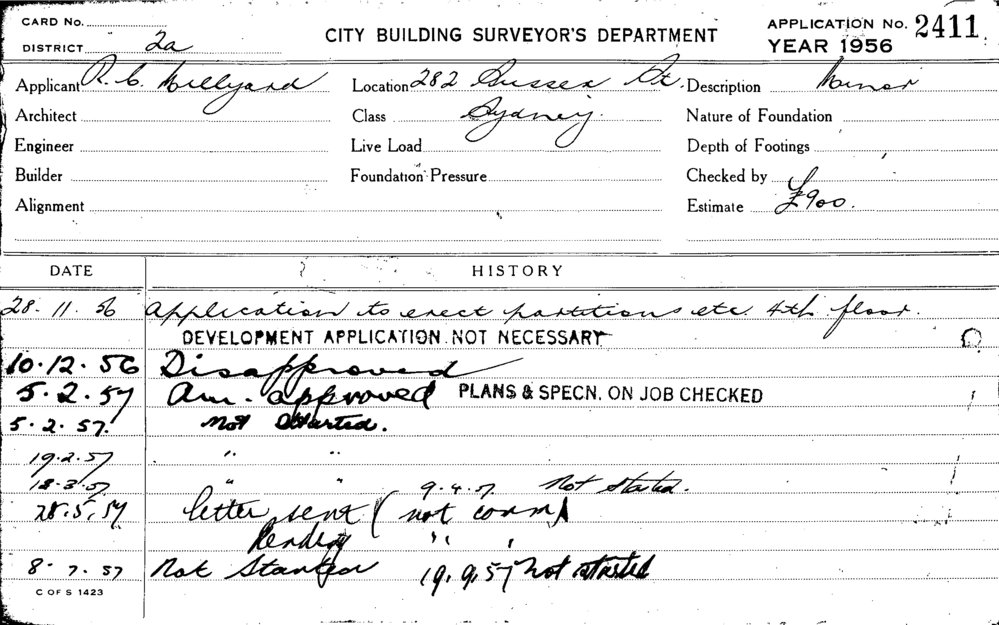 CARD No.
DISTRICT 2a
CITY BUILDING SURVEYOR'S DEPARTMENT
APPLICATION No. 2411
YEAR 1956
Applicant R. C. Hillyard Location 282 Sussex St. Description Minor
Architect Class Sydney. Nature of Foundation
Engineer Live Load Depth of Footings
Builder Foundation Pressure Checked by
Alignment Estimate £900.
DATE HISTORY
28. 11. 56 Application to erect partitions etc 4th floor.
DEVELOPMENT APPLICATION NOT NECESSARY
10.12.56 Disapproved
5.2.57 Am. approved PLANS & SPECN. ON JOB CHECKED
5.2.57. Not Started.
19.2.57 " "
18.3.57 " " 9.4.57. Not started.
28.5.57 letter sent (not comm)
" "
8.7.57 Not Started 19.9.57 Not started
C OF S 1423